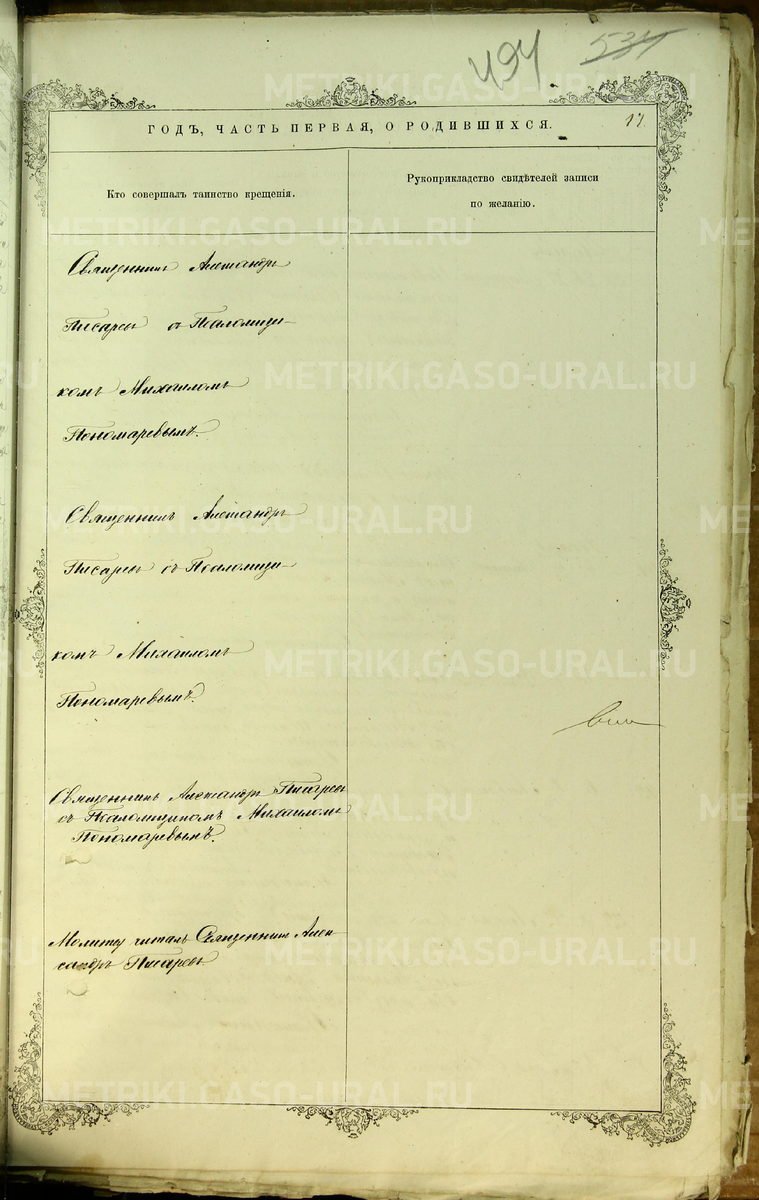 494 534
ГОДЪ, ЧАСТЬ ПЕРВАЯ, О РОДИВШИХСЯ. 17
Кто совершалъ таинство крещенія.
Рукоприкладство свидѣтелей записи
по желанію.
Священникъ Александръ
Писаревъ съ Псаломщи-
комъ Михаиломъ
Пономаревымъ.
Священникъ Александръ
Писаревъ съ Псаломщи-
комъ Михаиломъ
Пономаревымъ.
Священникъ Александръ Писаревъ
съ Псаломщикомъ Михаиломъ
Пономаревымъ.
Молитву читалъ Священникъ Алек-
сандръ Писаревъ.
METRIKI.GASO-URAL.RU